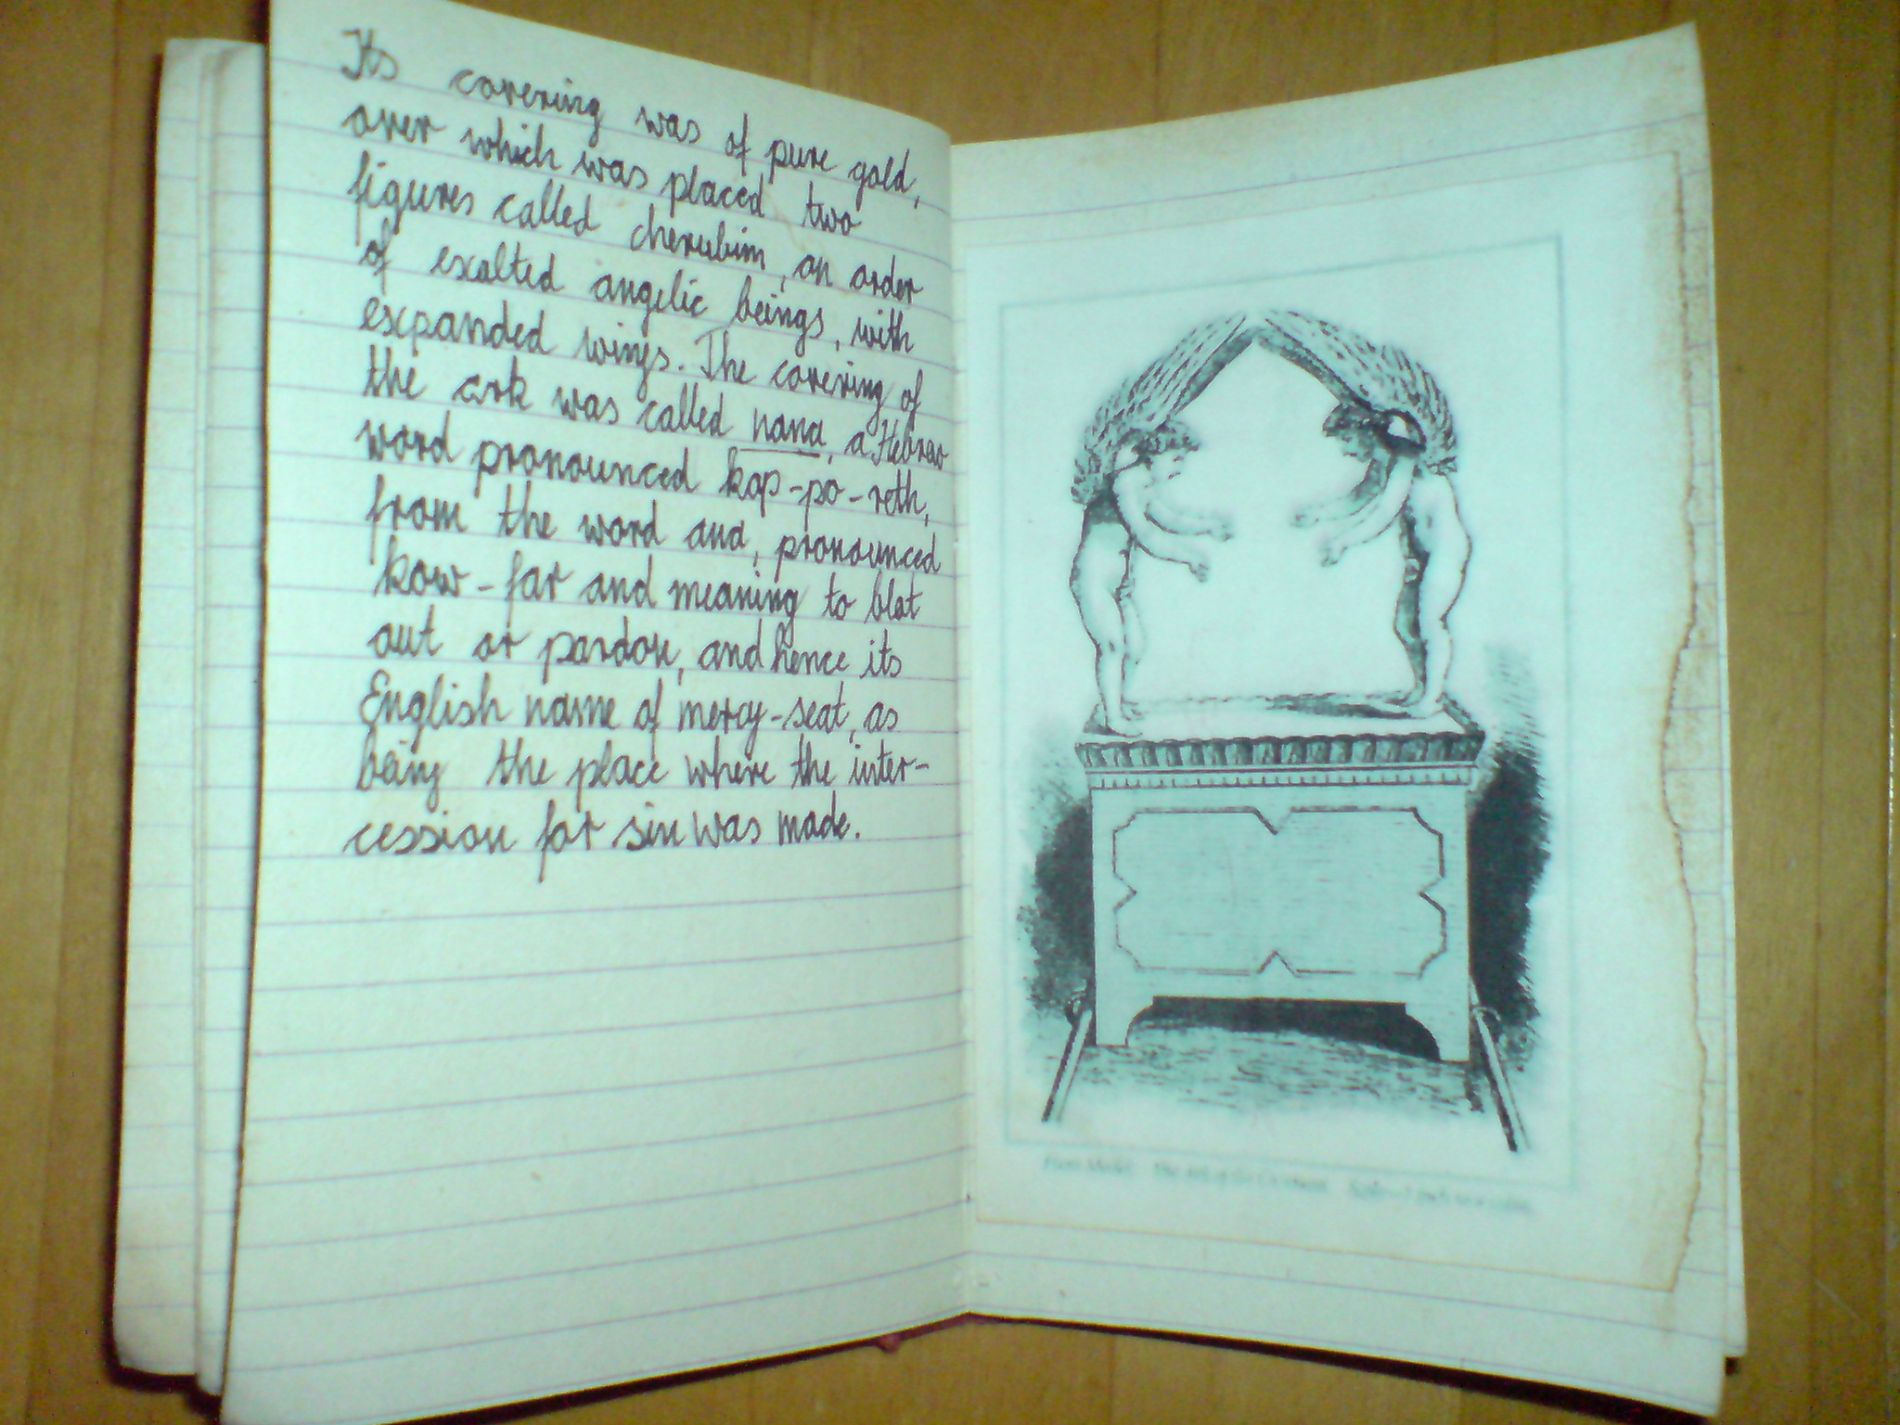 Its covering was of pure gold,
over which was placed two
figures called cherubim, an order
of exalted angelic beings, with
expanded wings. The covering of
the ark was called nana, a Hebrew
word pronounced kap-po-reth,
from the word ana, pronounced
kaw-far and meaning to blot
out or pardon, and hence its
English name of mercy-seat, as
being the place where the inter-
cession for sin was made.
The Ark of the Covenant